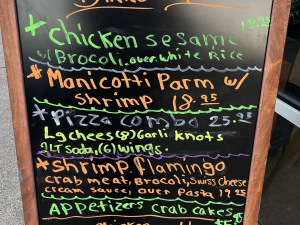 * Chicken sesame 18.95
w/ Brocoli, over white Rice
* Manicotti Parm w/
shrimp 18.95
* Pizza combo 25.95
Lg chees (8) Garli knots
2LT Soda, (6) wings
* shrimp flamingo
crab meat, Brocoli, Swiss cheese
cream sauce, over Pasta 19.95
APPetizers crab cakes